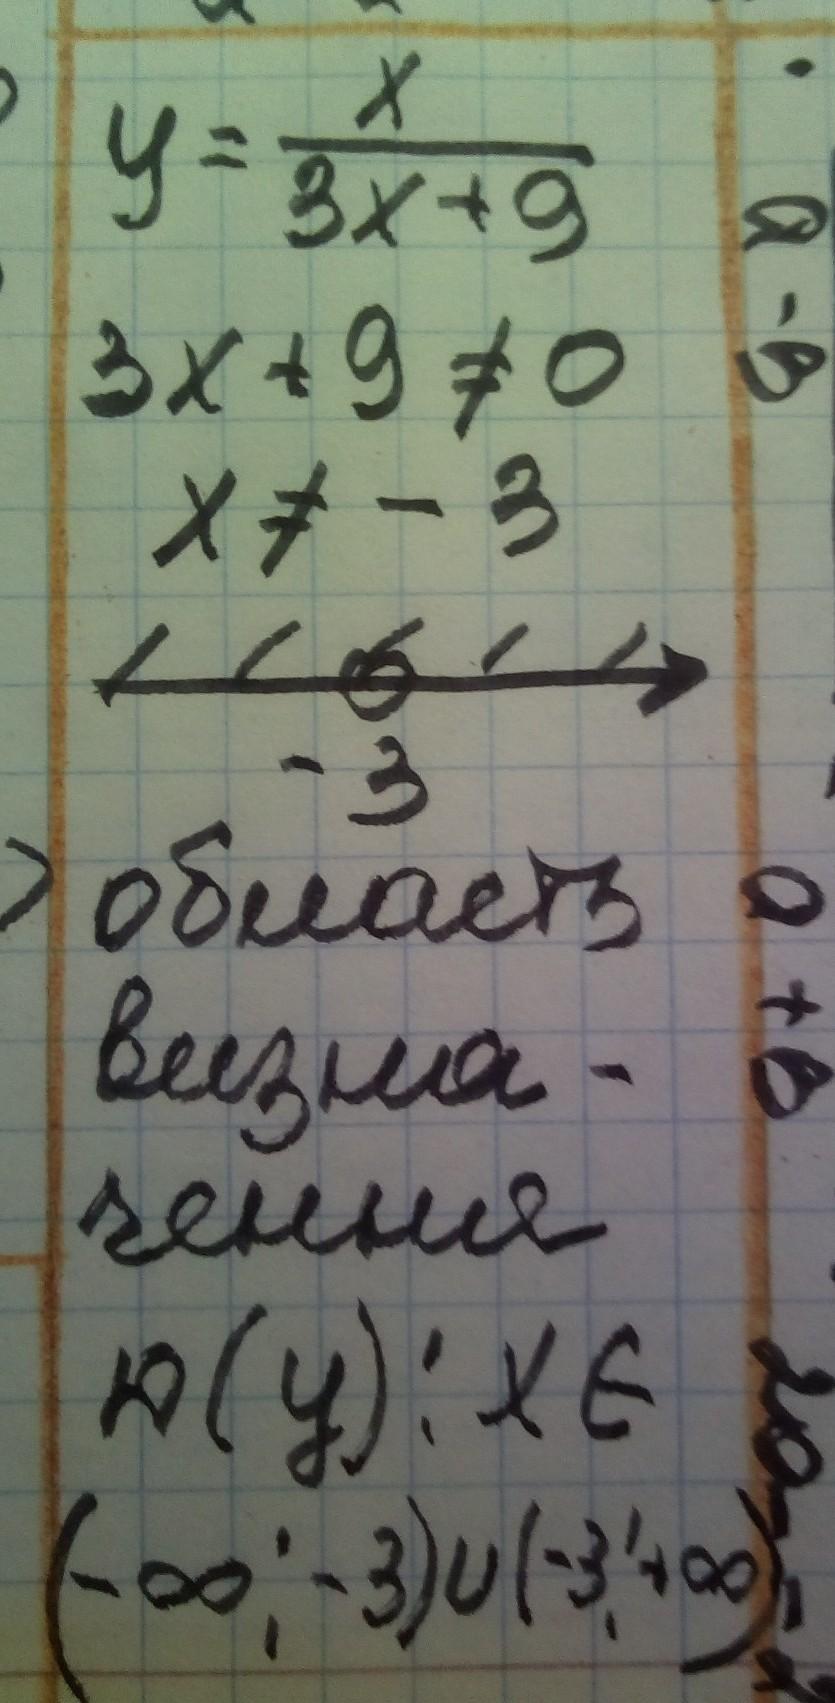 y = x / 3x + 9
3x + 9 ≠ 0
x ≠ - 3
- 3
область
визна -
чення
D(y): x ∈
(-∞; -3)∪(-3;+∞)